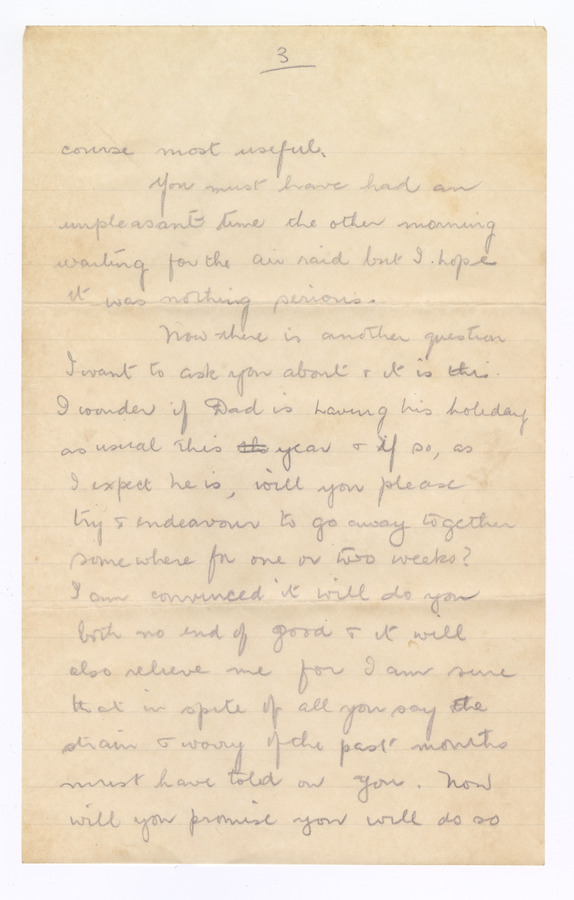 3
course most useful.
You must have had an
unpleasant time the other morning
waiting for the air raid but I hope
it was nothing serious.
Now there is another question
I want to ask you about & it is this.
I wonder if Dad is having his holiday
as usual this ths year & if so, as
I expect he is, will you please
try & endeavour to go away together
somewhere for one or two weeks?
I am convinced it will do you
both no end of good & it will
also relieve me for I am sure
that in spite of all you say the
strain & worry of the past months
must have told on you. Now
will you promise you will do so